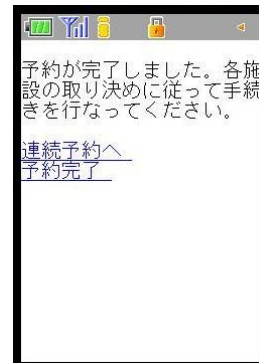 予約が完了しました。各施
設の取り決めに従って手続
きを行なってください。
連続予約へ
予約完了